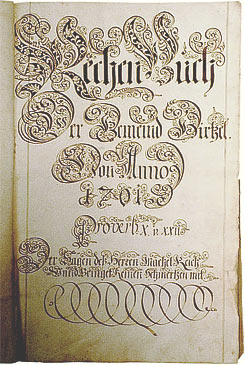 Rechen-Buch
Der Gemeind Hirtzel.
Von Anno
1701
Proverb. X. v. XXII.
Der Segen deß Herren Machet Reich
Und Bringet Keinen Schmertzen mit.